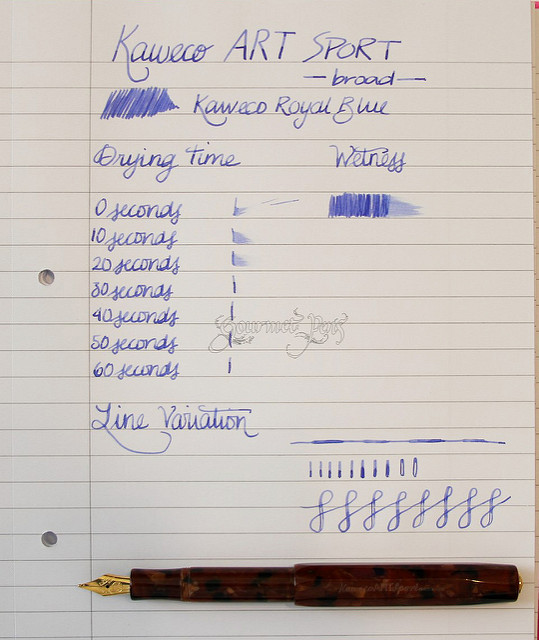 Kaweco ART SPORT
—broad—
Kaweco Royal Blue
Drying Time
Wetness
0 seconds
10 seconds
20 seconds
30 seconds
40 seconds
50 seconds
60 seconds
Gourmet Pens
Line Variation